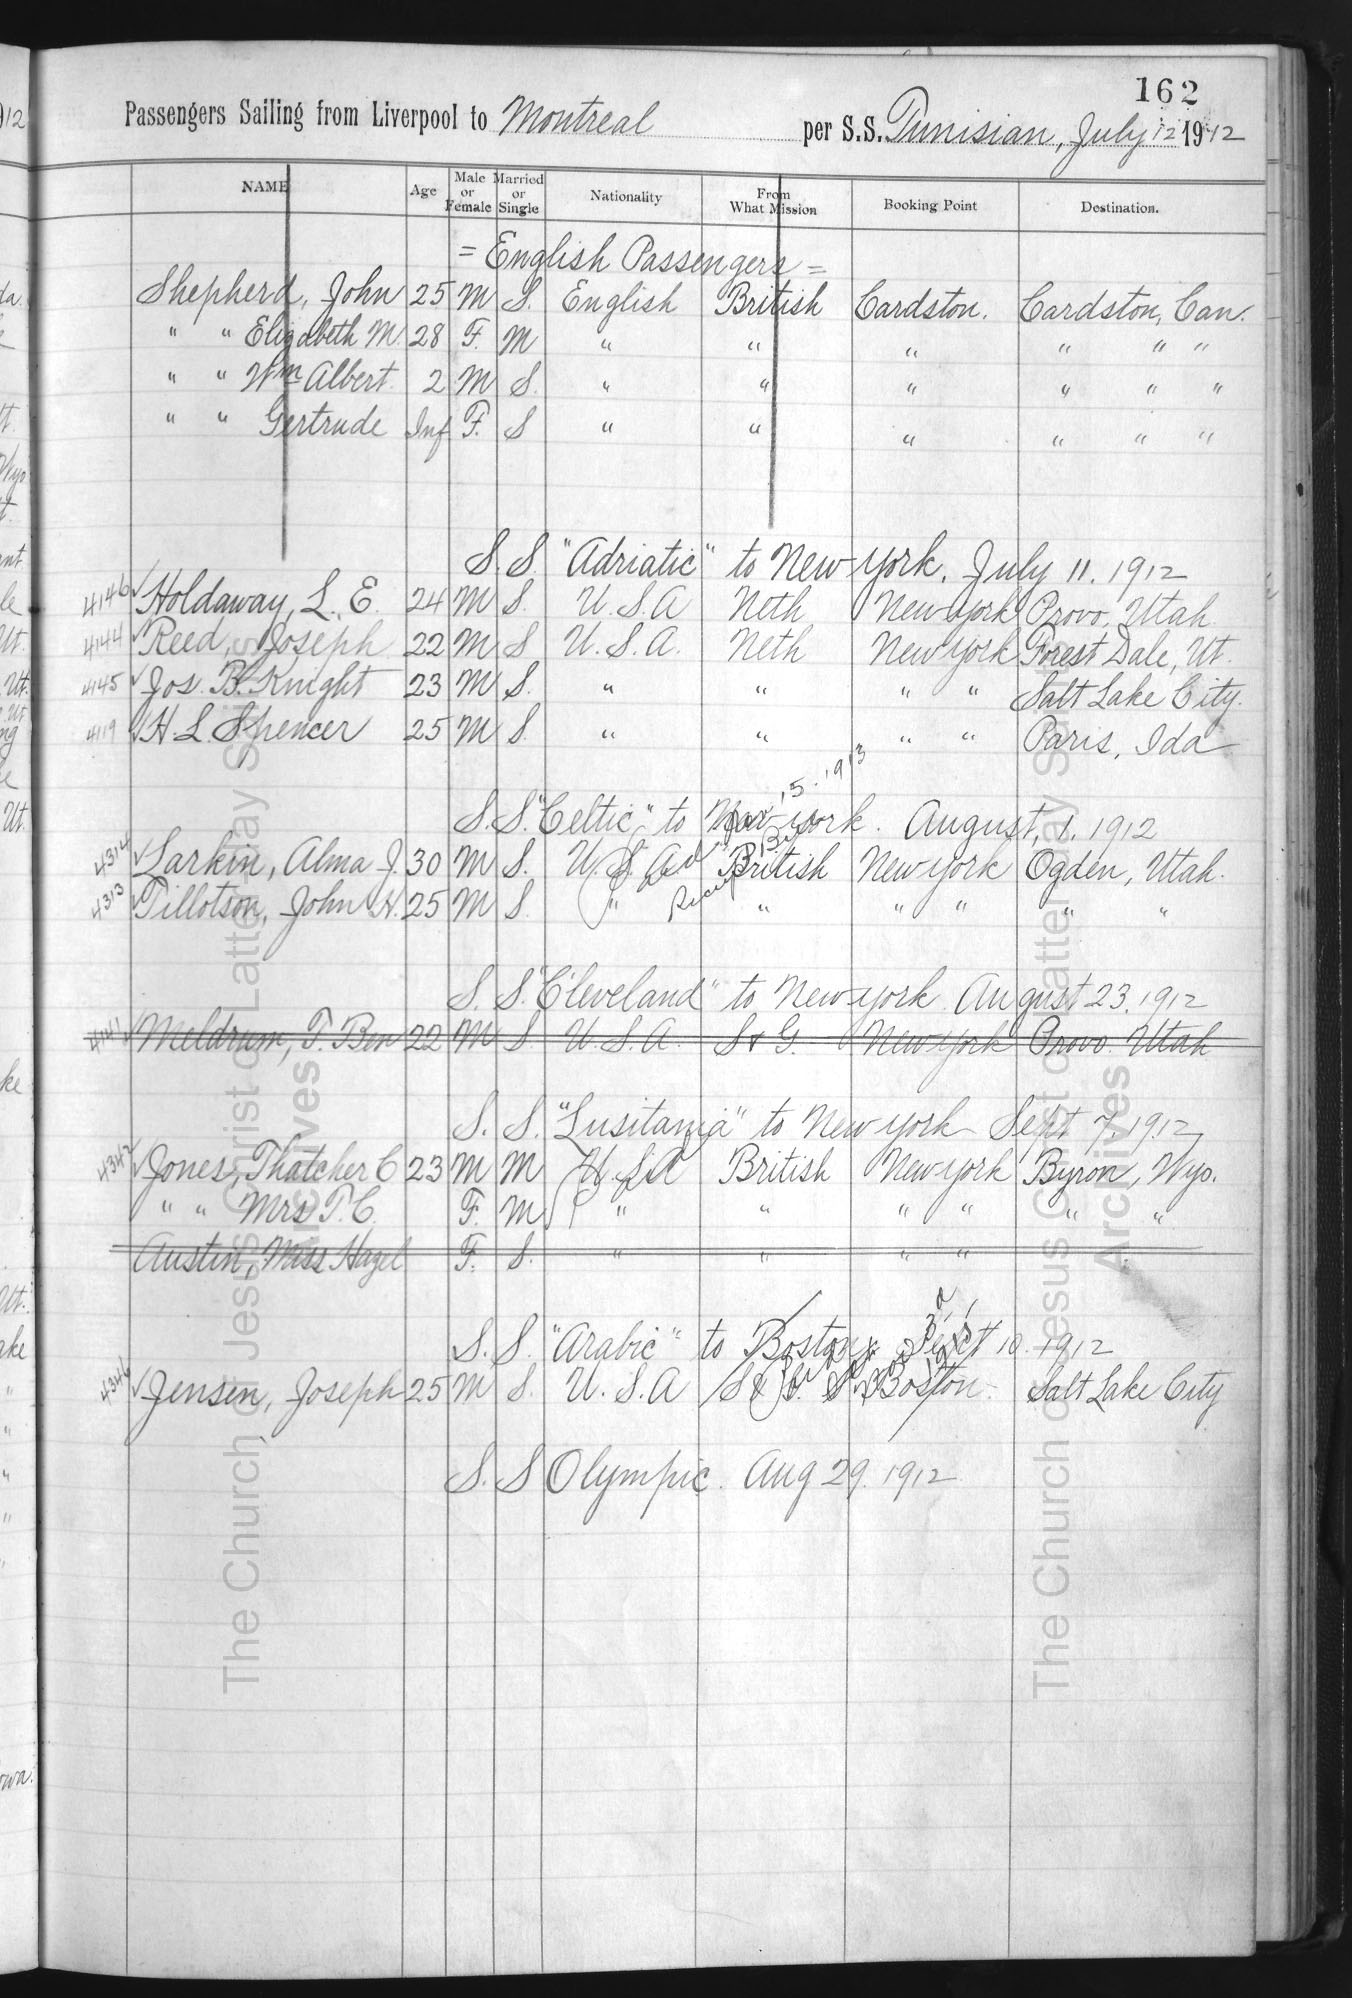 162
Passengers Sailing from Liverpool to Montreal per S.S. Tunisian, July 12 1912
NAME Age Male or Female Married or Single Nationality From What Mission Booking Point Destination.
= English Passengers =
Shepherd, John 25 M S. English British Cardston. Cardston, Can.
" " Elizabeth M. 28 F. M " " " " " "
" " Wm Albert 2 M S. " " " " " "
" " Gertrude Inf F. S " " " " " "
S.S. "Adriatic" to New York. July 11. 1912
4146 ✓ Holdaway, L. E. 24 M S. U.S.A Neth New York Provo, Utah
4144 ✓ Reed, Joseph 22 M S U.S.A. Neth New York Forest Dale, Ut.
4145 ✓ Jos. B. Knight 23 M S. " " " " Salt Lake City.
4119 ✓ H L Spencer 25 M S. " " " " Paris, Ida
15. 1913
S.S. "Celtic" to New York. August, 1. 1912
4314 ✓ Larkin, Alma J. 30 M S. U.S.A British New York Ogden, Utah.
4313 ✓ Tillotson, John H. 25 M S " " " " " "
S.S. "Cleveland" to New York. August 23. 1912
4141 ✓ Meldrum, T. Ben 22 M S. U.S.A. S & G. New York Provo. Utah
S.S. "Lusitania" to New York Sept 7. 1912
4342 ✓ Jones, Thatcher C 23 M M U.S.A British New York Byron, Wyo.
" " Mrs T.C. F. M " " " " " "
Austin, Miss Hazel F. S. " " " "
S.S. "Arabic" to Boston 10. 1912
4346 ✓ Jensen, Joseph 25 M S. U.S.A S & G. Boston Salt Lake City
S.S Olympic. Aug 29. 1912
The Church of Jesus Christ of Latter-day Saints
Archives
The Church of Jesus Christ of Latter-day Saints
Archives